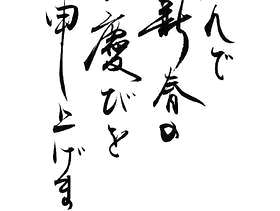 んで
新春の
慶びを
申上げま